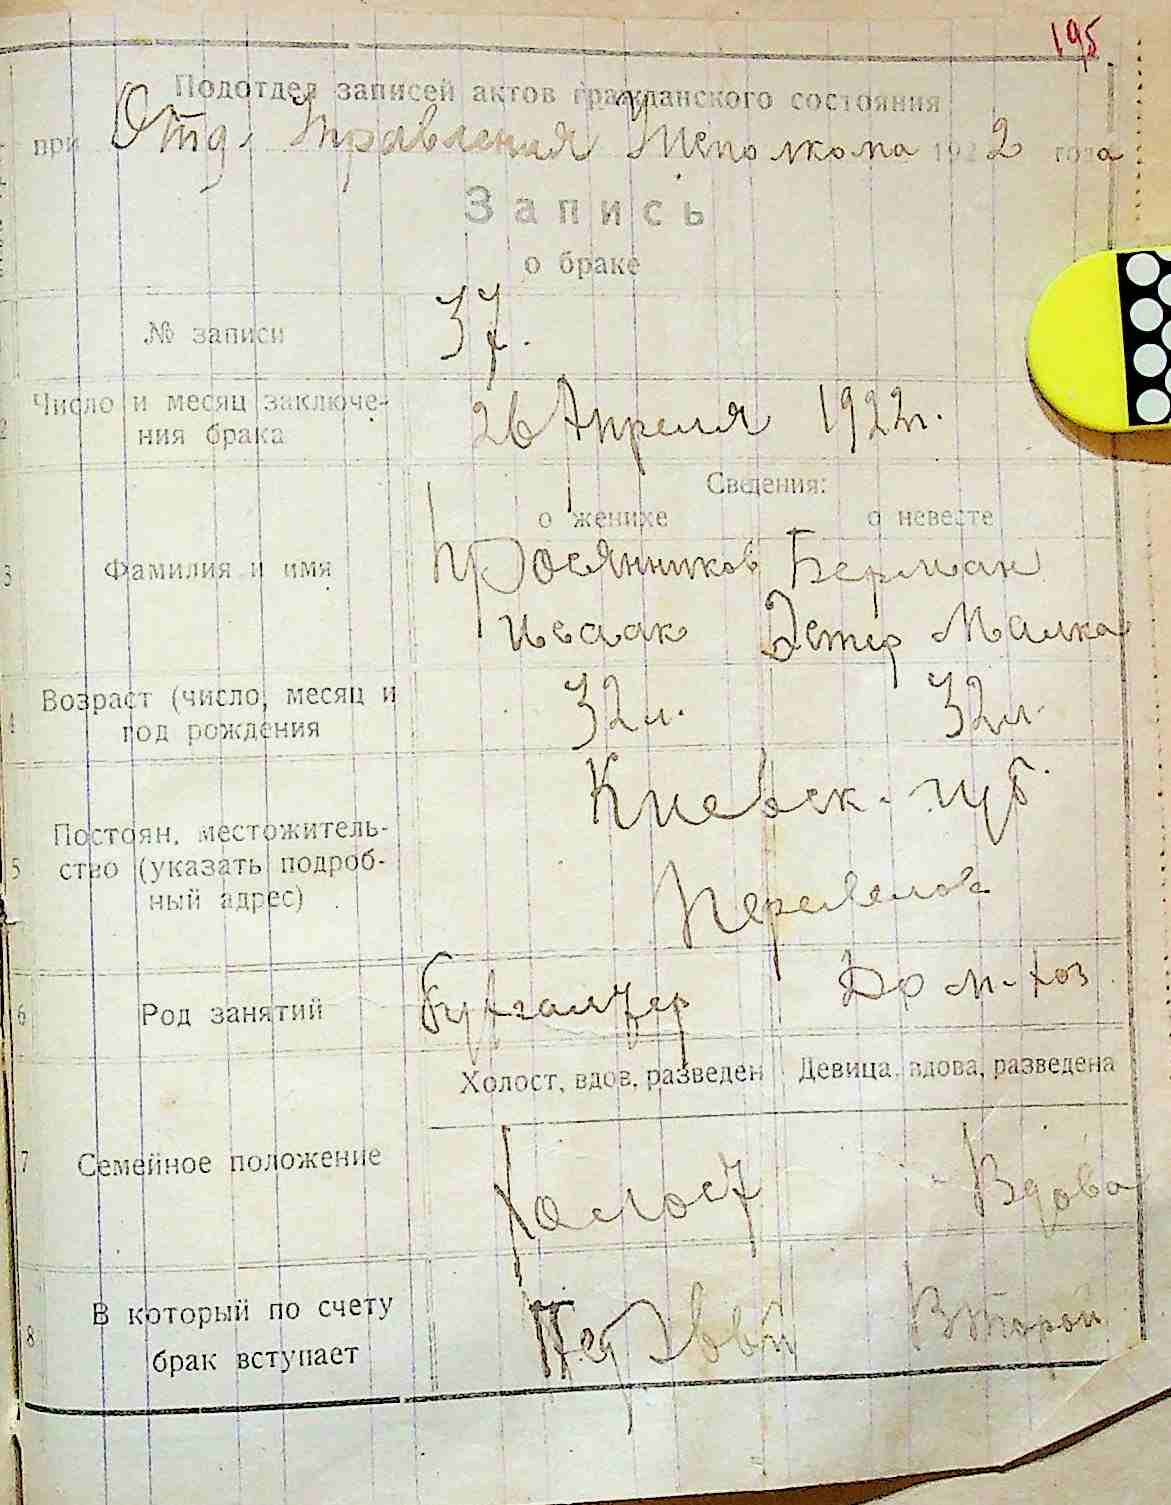 195
Подотдел записей актов гражданского состояния
при Отд. Управления Исполкома 1922 года
Запись
о браке
№ записи 37.
2 Число и месяц заключе-
ния брака 26 Апреля 1922 г.
Сведения:
о женихе о невесте
3 Фамилия и имя Просянников Берман
Исаак Эстер Малка
4 Возраст (число, месяц и
год рождения 32 л. 32 л.
Киевск. губ.
5 Постоян. местожитель-
ство (указать подроб-
ный адрес)
6 Род занятий Бухгалтер Дом. хоз.
Холост, вдов, разведен Девица, вдова, разведена
7 Семейное положение Холост Вдова
8 В который по счету
брак вступает Первый Второй